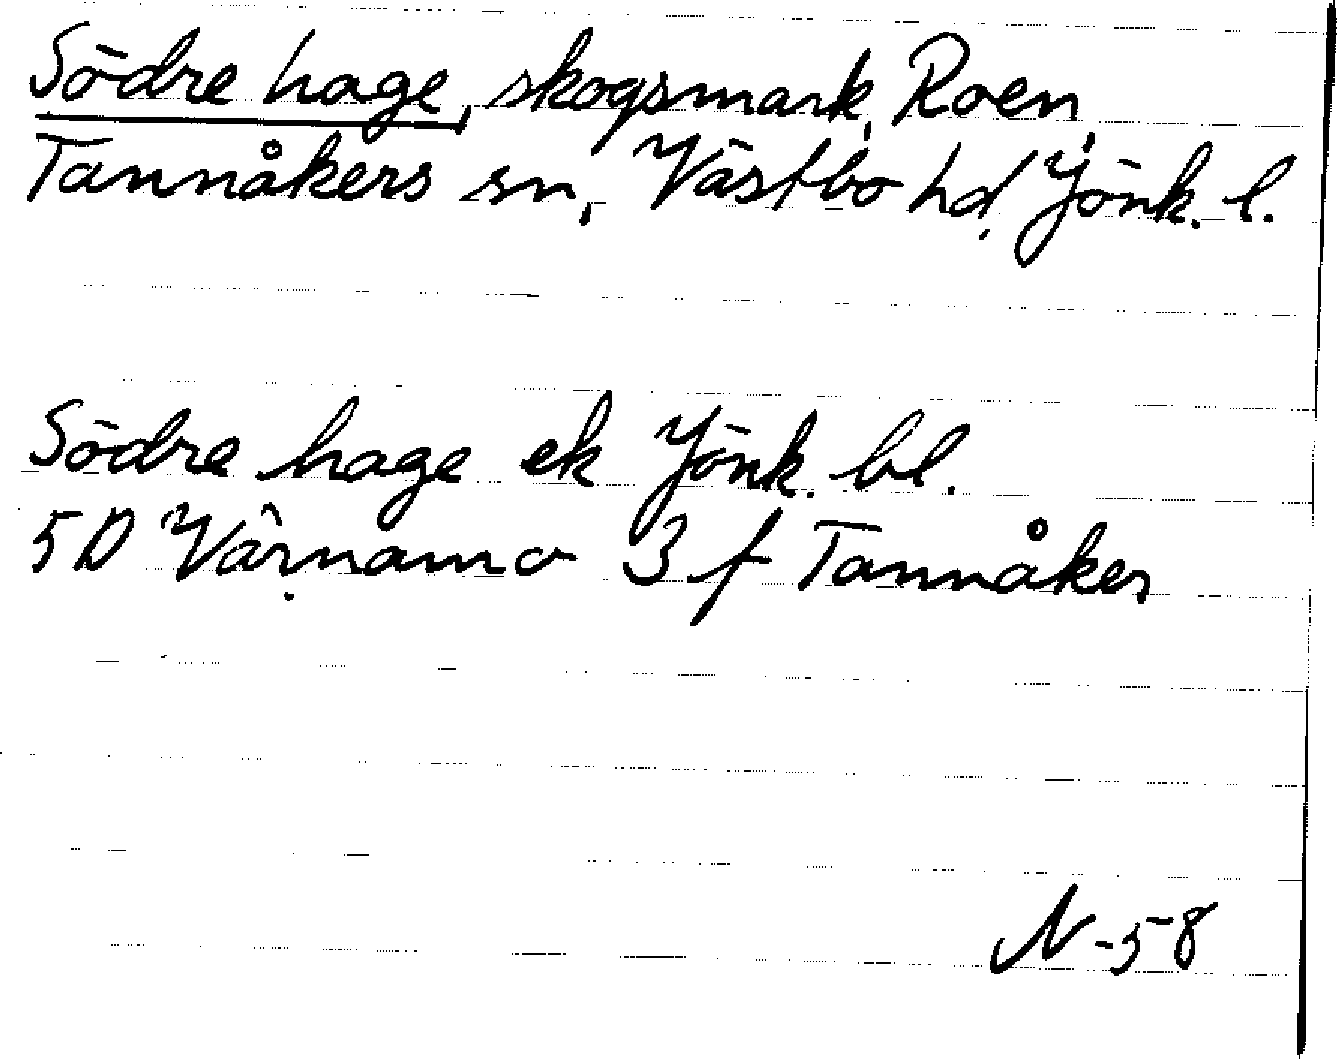 Södre hage, skogsmark, Roen,
Tannåkers sn, Västbo hd, Jönk. l.
Södre hage ek Jönk. bl.
5D Värnamo 3 f Tannåker
N -58